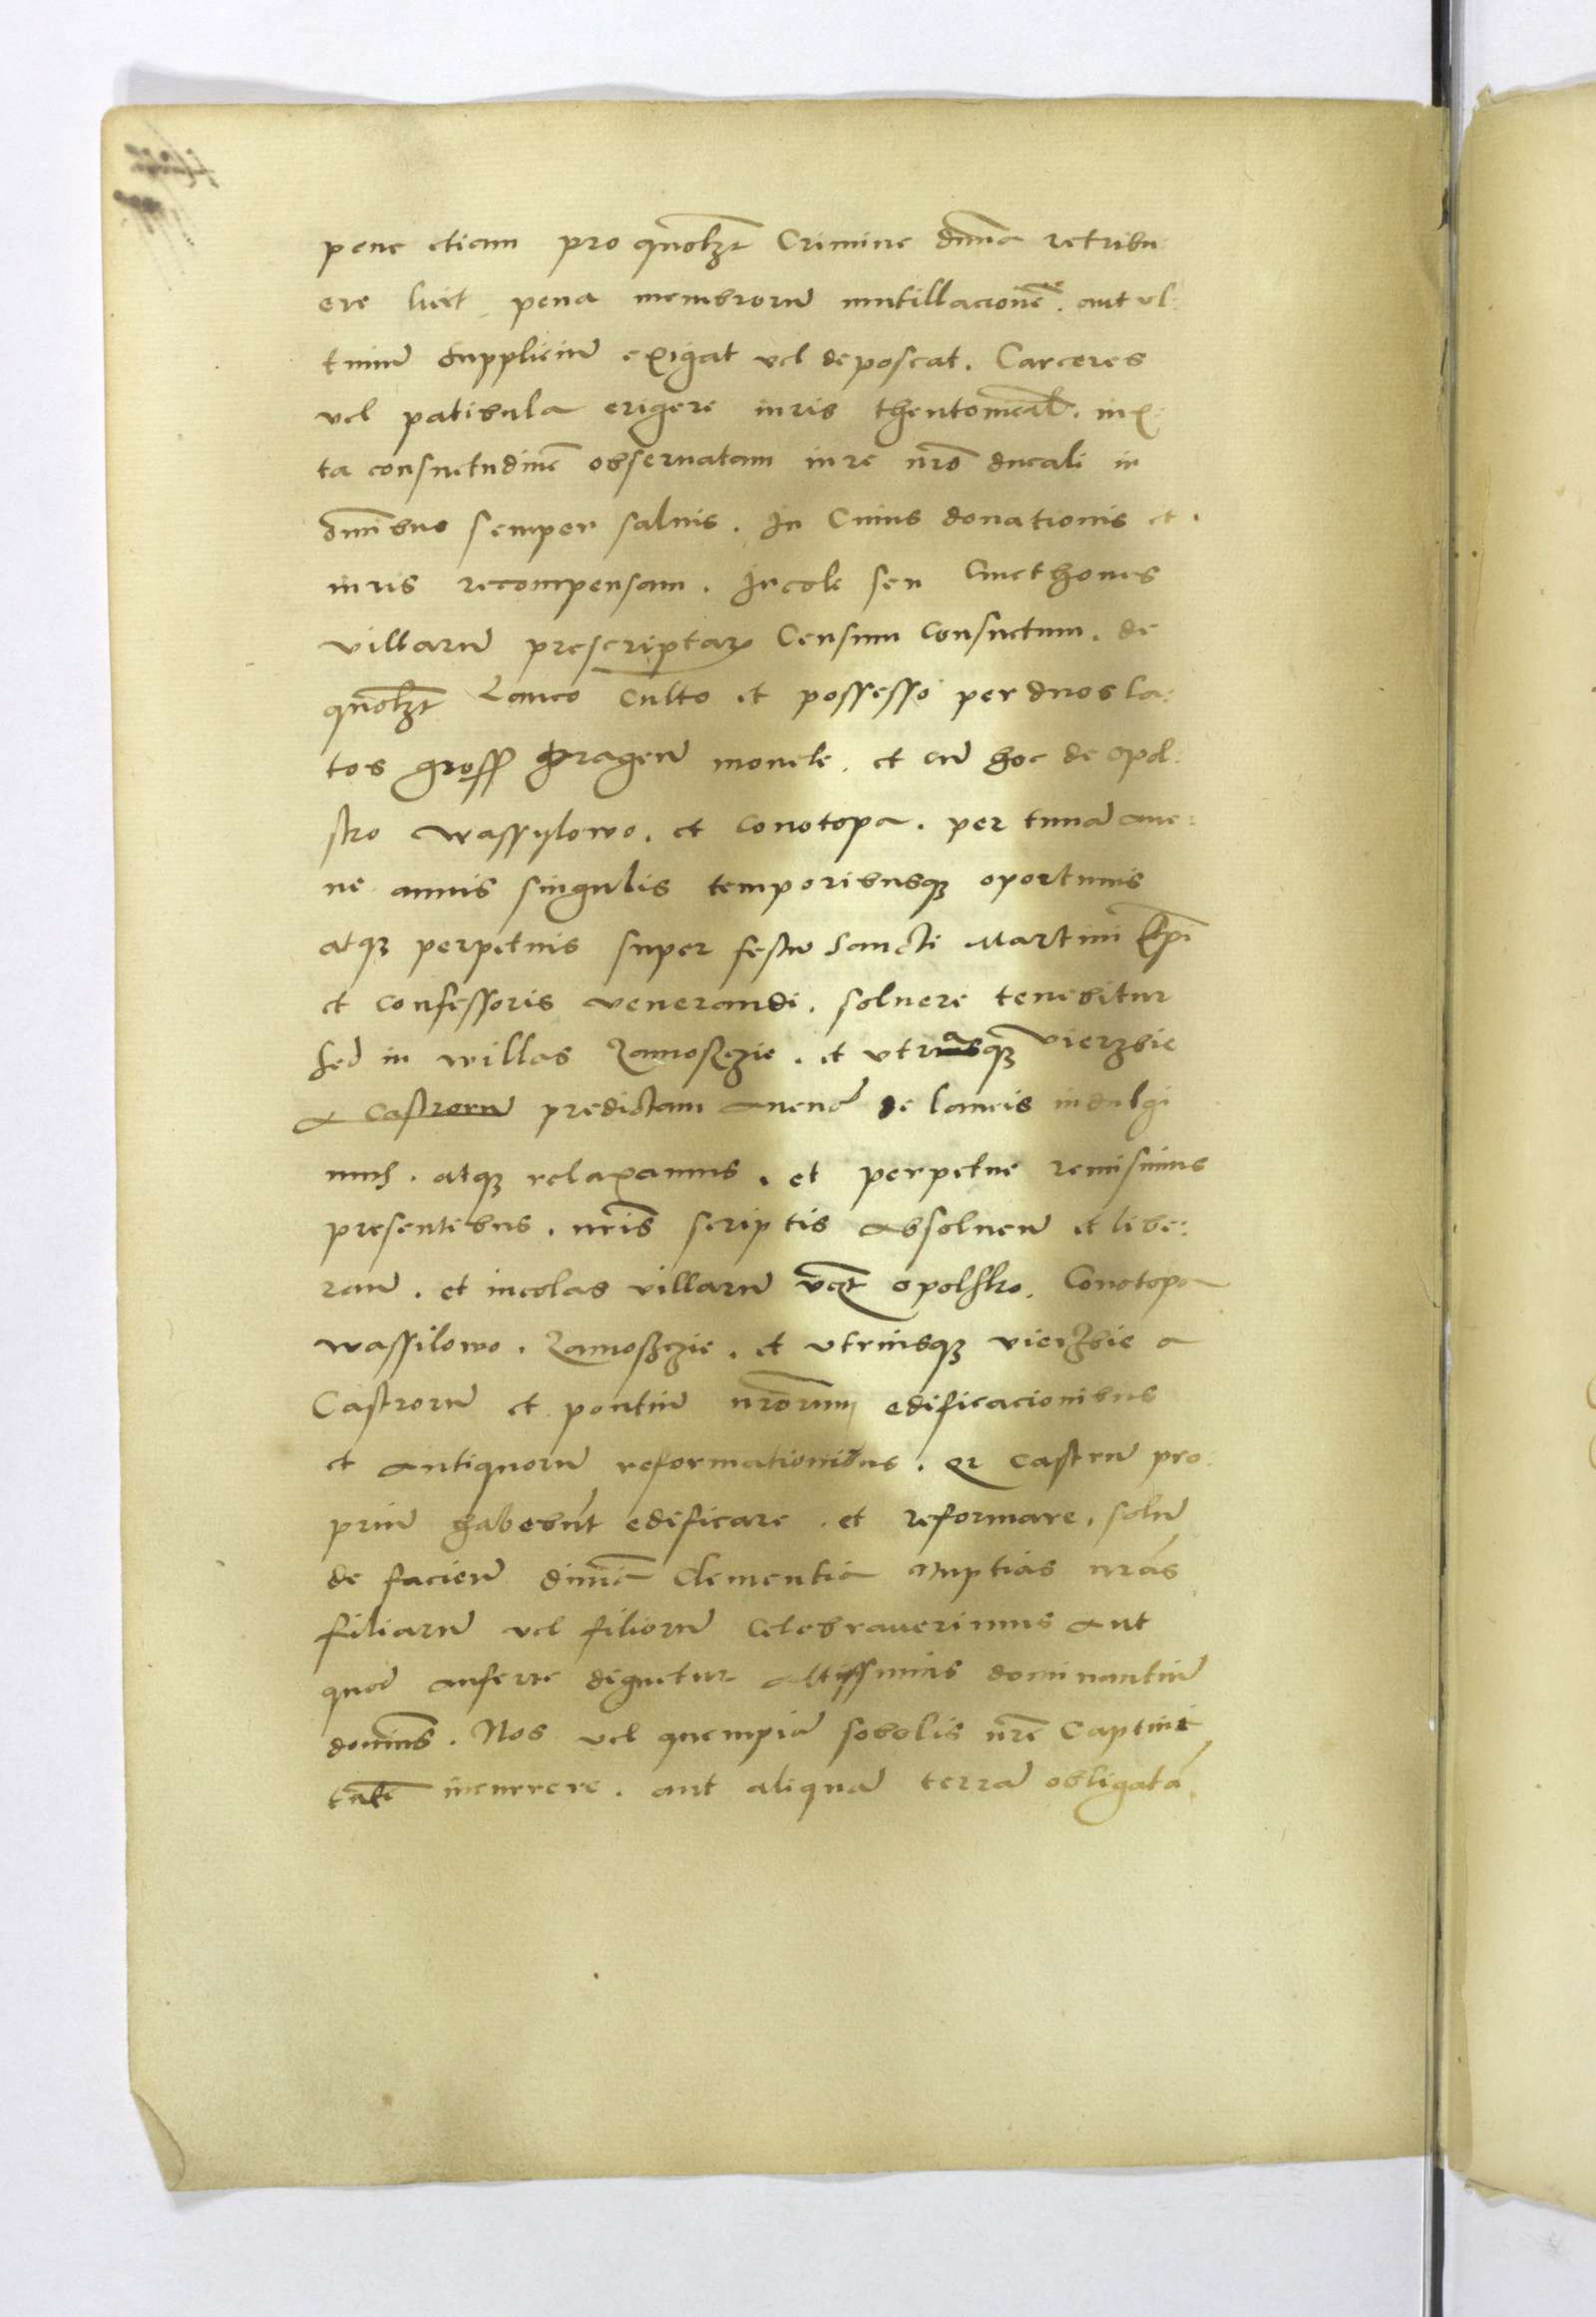 pene etiam pro quolꝫt Crimine dm̄a retribu:
ere licet pena membrorū mutillacionē. aut ul:
timū Suppliciū exigat vel deposcat. Carceres
vel patibula erigere iuris theutonicāl. iux:
ta consuetudinē obseruatam iure nrō ducali in
oīnibus semper saluis. In Cuius donationis et.
iuris recompensam. Incole seu Cmethones
villarū prescriptaꝝ Censum Consuetum. de
quolꝫt Laneo Culto et possesso per duos la:
tos gross pragen̄ monete. et cū hoc de opol:
sko wassylowo. et conotopa. per tunā aue:
ne annis singulis temporibusqꝫ oportunis
atqꝫ perpetuis super festū Sancti Martini Epī
et confessoris venerandi. soluere tenebitur
Sed in willas Zamosczie. et vtrasqꝫ vierzbie
a Castrorū predictam auenā de laneis indulgi
mus. atqꝫ relaxamus. et perpetue remisimus
presentibus. nrīs scriptis absoluen̄ et libe:
ran̄. et incolas villarū vꝫt opolsko. Conotopa
wassilowo. Zamosczie. et vtriusqꝫ vierzbie a
Castrorū et pontiū nrōrum edificacionibus
et antiquorū reformationibus. qꝛ castrū pro:
priū habebūt edificare. et reformare. solū
de facien̄ diuīa Clementia Nuptias nrās
filiarū vel filiorū Celebrauerimus aut
quod auferre dignetur altissimus dominantiū
domins. Nos vel quempiā sobolis nrē Captiui
tatē incurrere. aut aliquā terrā obligatā